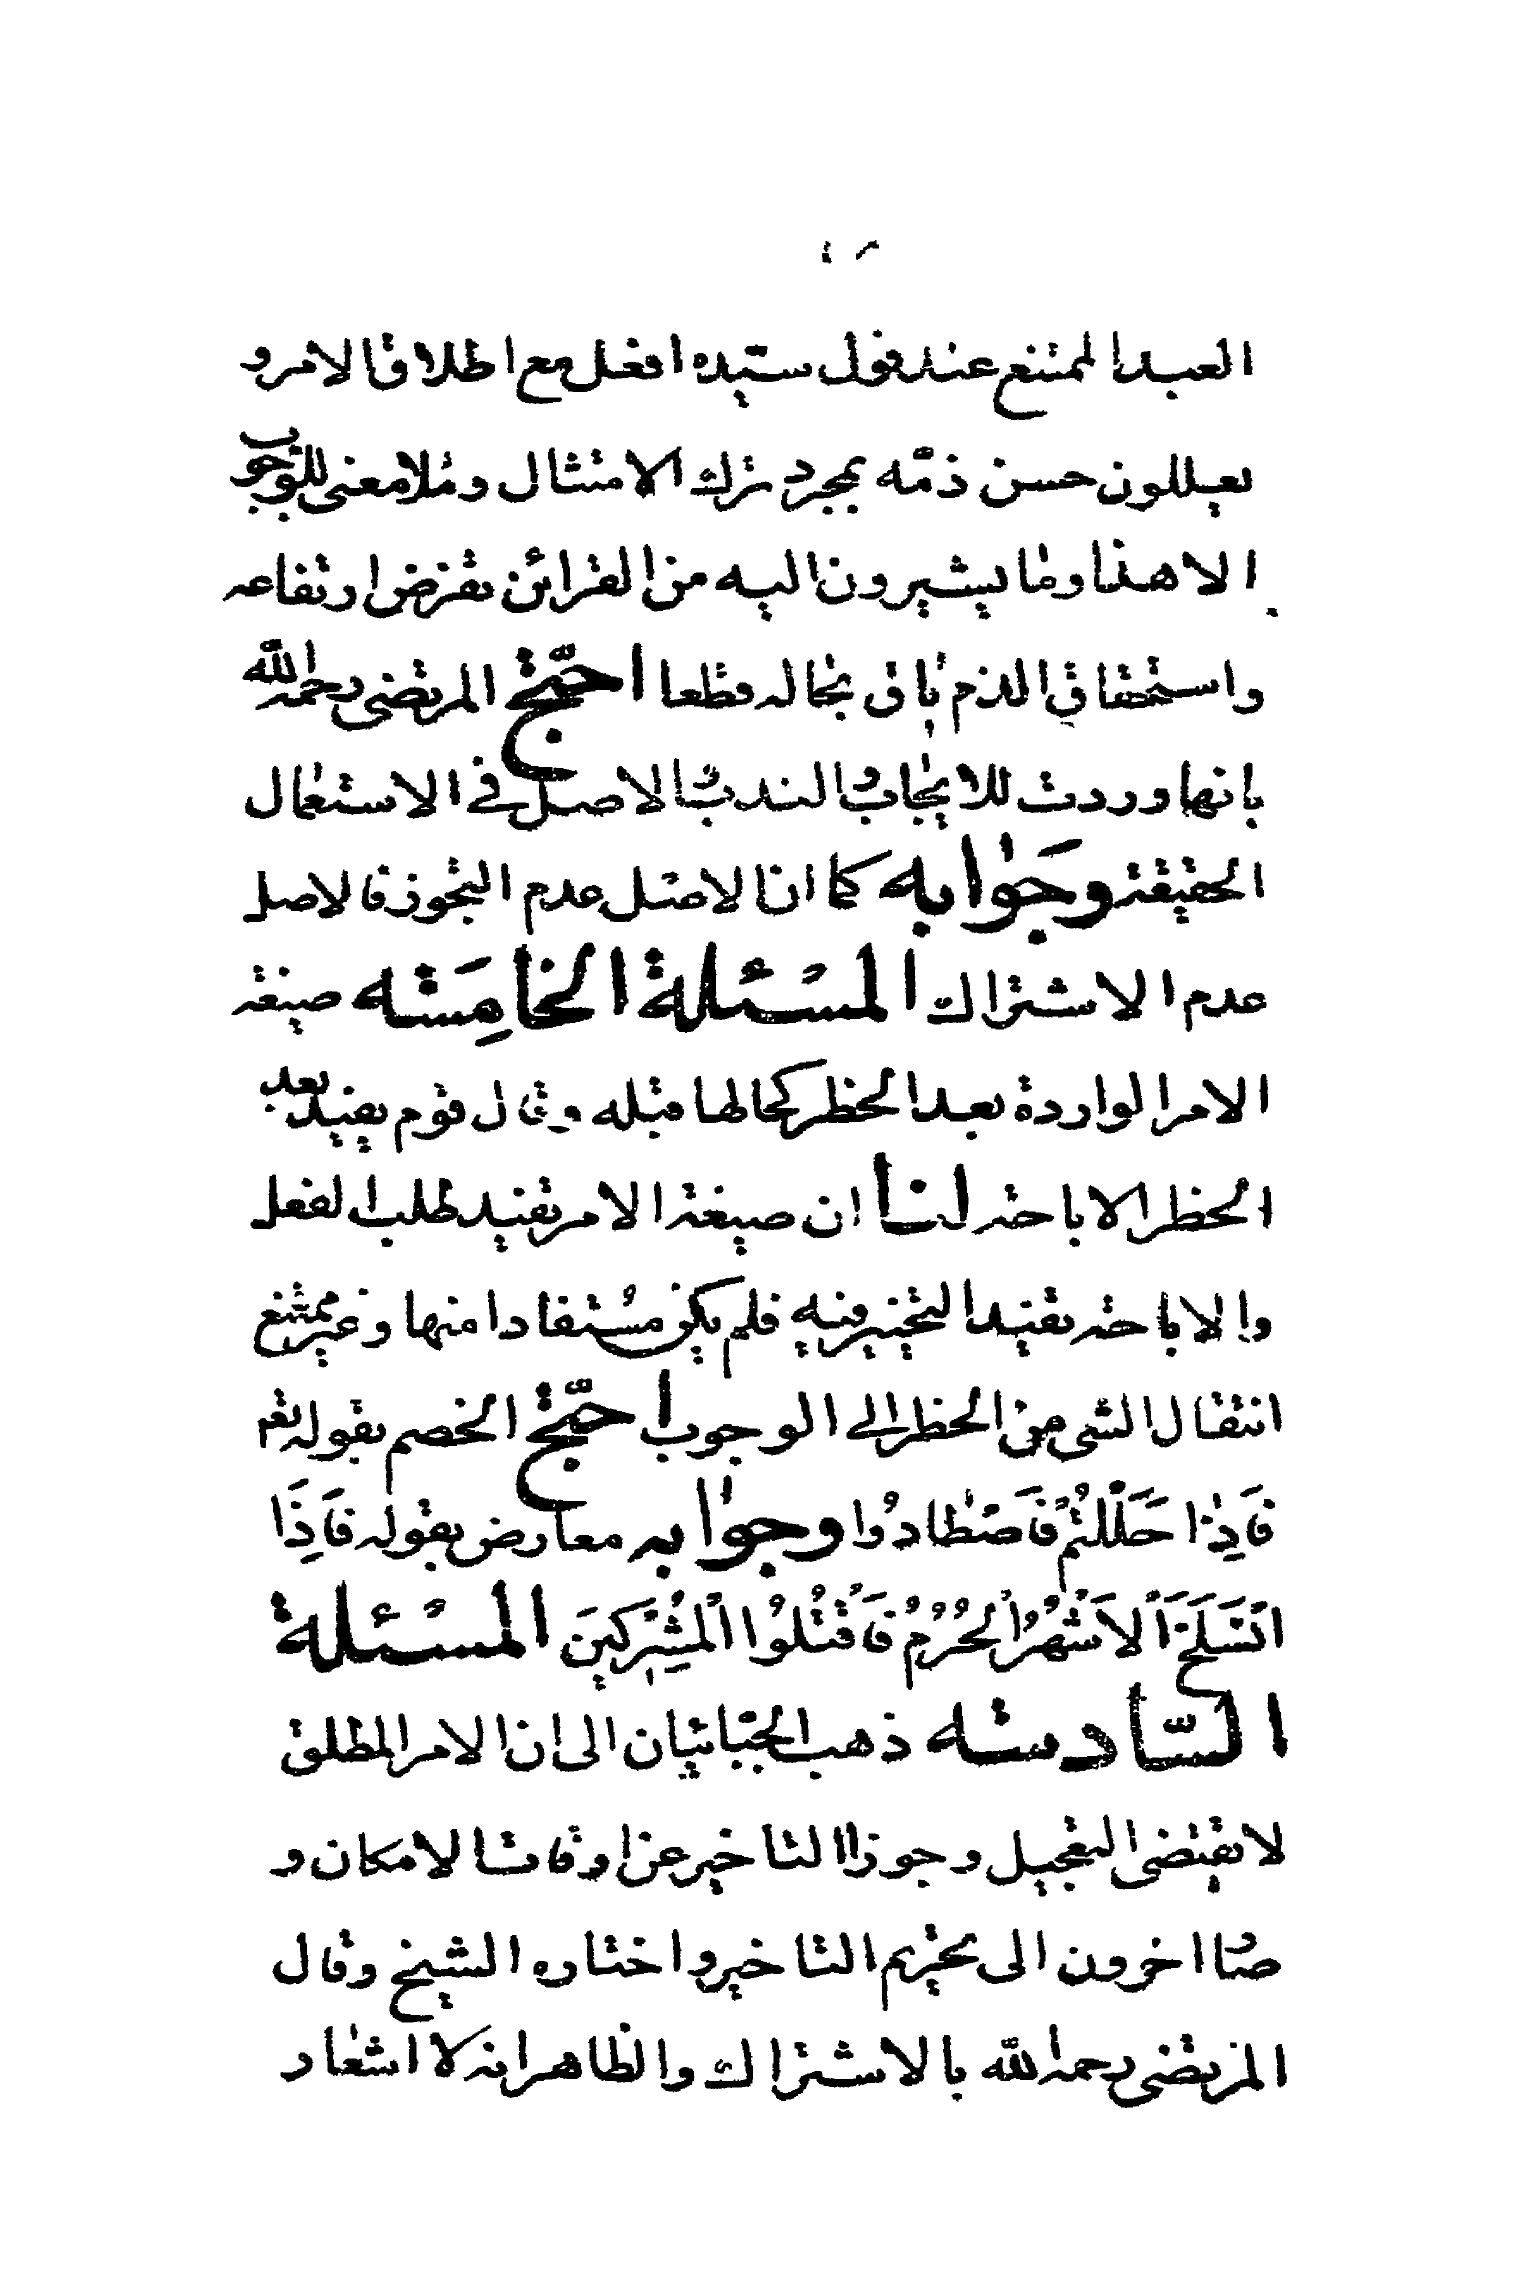 العبد الممتنع عند قول سيّده افعل مع اطلاق الامر و
يعللون حسن ذمّه بمجرد ترك الامتثال ومٰلا معنى للوجوب
الا هذا وما يشيرون اليه من القرائن نفرض ارتفاعه
واستحقاق الذم باق بحاله قطعا احتجّ المرتضى رحمه اللّٰه
بانها وردت للايجاب و الندب و الاصل في الاستعمال
الحقيقة وجوابه كما ان الاصل عدم التجوز فالاصل
عدم الاشتراك المسئلة الخامسة صيغة
الامر الواردة بعد الحظر كحالها قبله وقال قوم يفيد بعد
الحظر الاباحة لنا ان صيغة الامر تفيد طلب الفعل
والاباحة تفيد التخيير فيه فلم يكن مستفادا منها وغير ممتنع
انتقال الشى من الحظر الى الوجوب احتجّ الخصم بقوله تعم
فَاِذٰا حَلَلْتُمْ فَاصْطٰادُوا وجوابه معارض بقوله فَاِذَا
انْسَلَخَ اَلْاَشْهُرُ اْلحُرُمُ فَاقْتُلُوا اْلمُشِرَكِينَ المسئلة
السّادسة ذهب الجبّائيان الى ان الامر المطلق
لا يقتضى التعجيل وجوزا التاخير عن اوقات الامكان و
صٰا اخرون الى تحريم التاخير واختاره الشيخ وقال
المرتضى رحمه اللّٰه بالاشتراك والظاهر انه لا اشعار